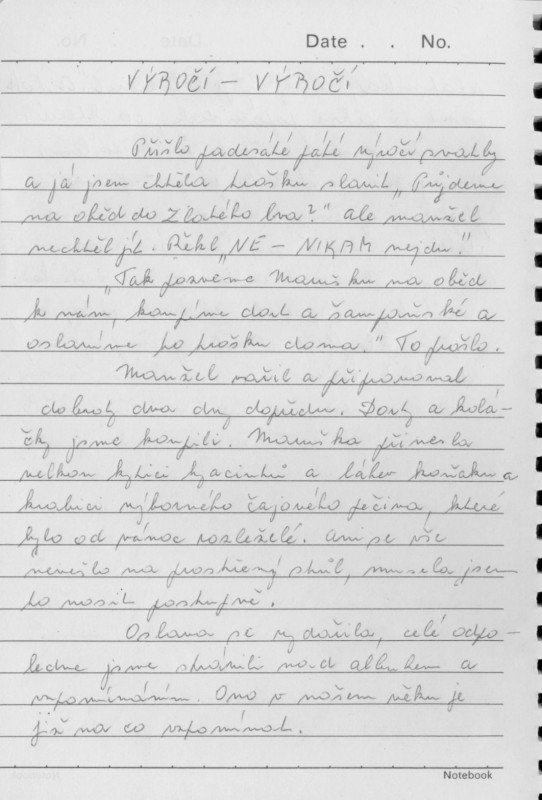 Date . . No.
VÝROČÍ – VÝROČÍ
Přišlo padesáté páté výročí svatby
a já jsem chtěla trošku slavit „Půjdeme
na oběd do Zlatého lva?" ale manžel
nechtěl jít. Řekl „NE – NIKAM nejdu."
„Tak pozveme Marušku na oběd
k nám, koupíme dort a šampaňské a
oslavíme to trošku doma." To prošlo.
Manžel vařil a připravoval
dobroty dva dny dopředu. Dorty a kolá-
čky jsme koupili. Maruška přinesla
velkou kytici hyacintů a láhev koňaku a
krabici výborného čajového pečiva, které
bylo od vánoc rozležělé. Ani se vše
nevešlo na prostřený stůl, musela jsem
to nosit postupně.
Oslava se vydařila, celé odpo-
ledne jsme strávili nad albuhem a
vzpomínáním. Ono v našem věku je
již na co vzpomínat.
Notebook